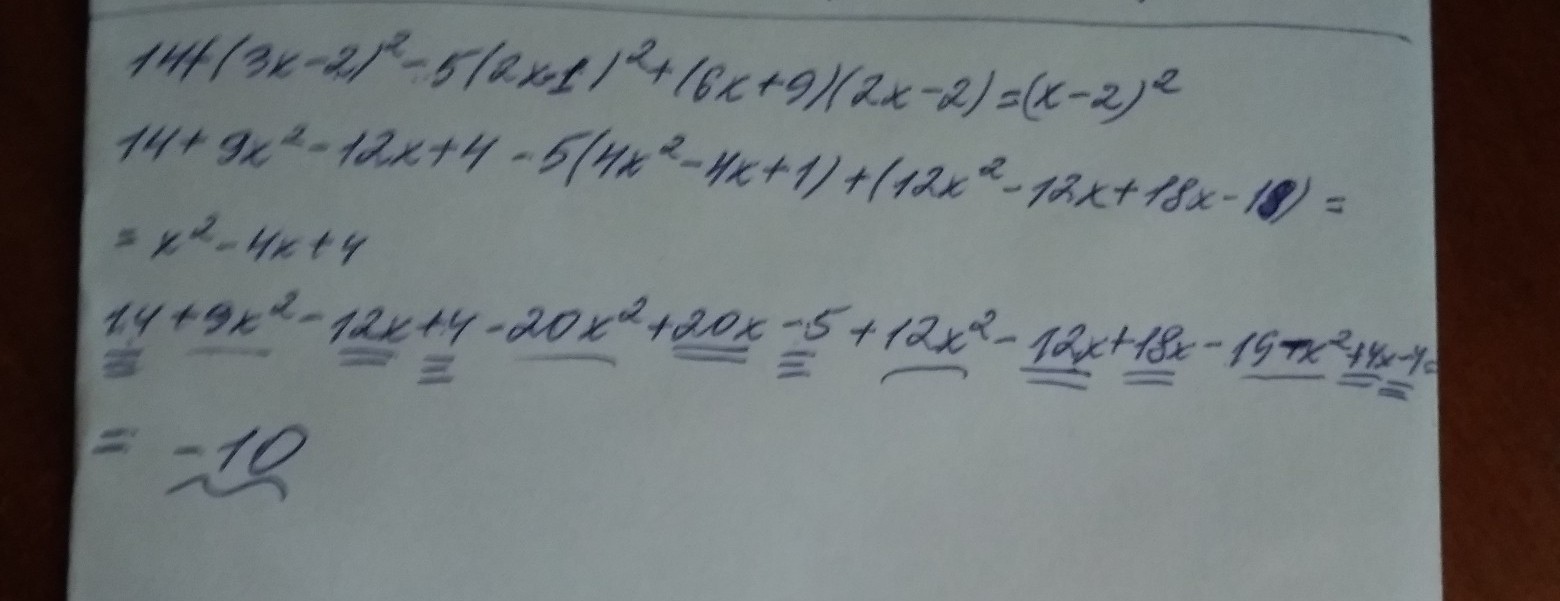 14+(3x-2)²-5(2x-1)²+(6x+9)(2x-2)=(x-2)²
14+9x²-12x+4-5(4x²-4x+1)+(12x²-12x+18x-18)=
=x²-4x+4
14+9x²-12x+4-20x²+20x-5+12x²-12x+18x-19-x²+4x-4=
= -10